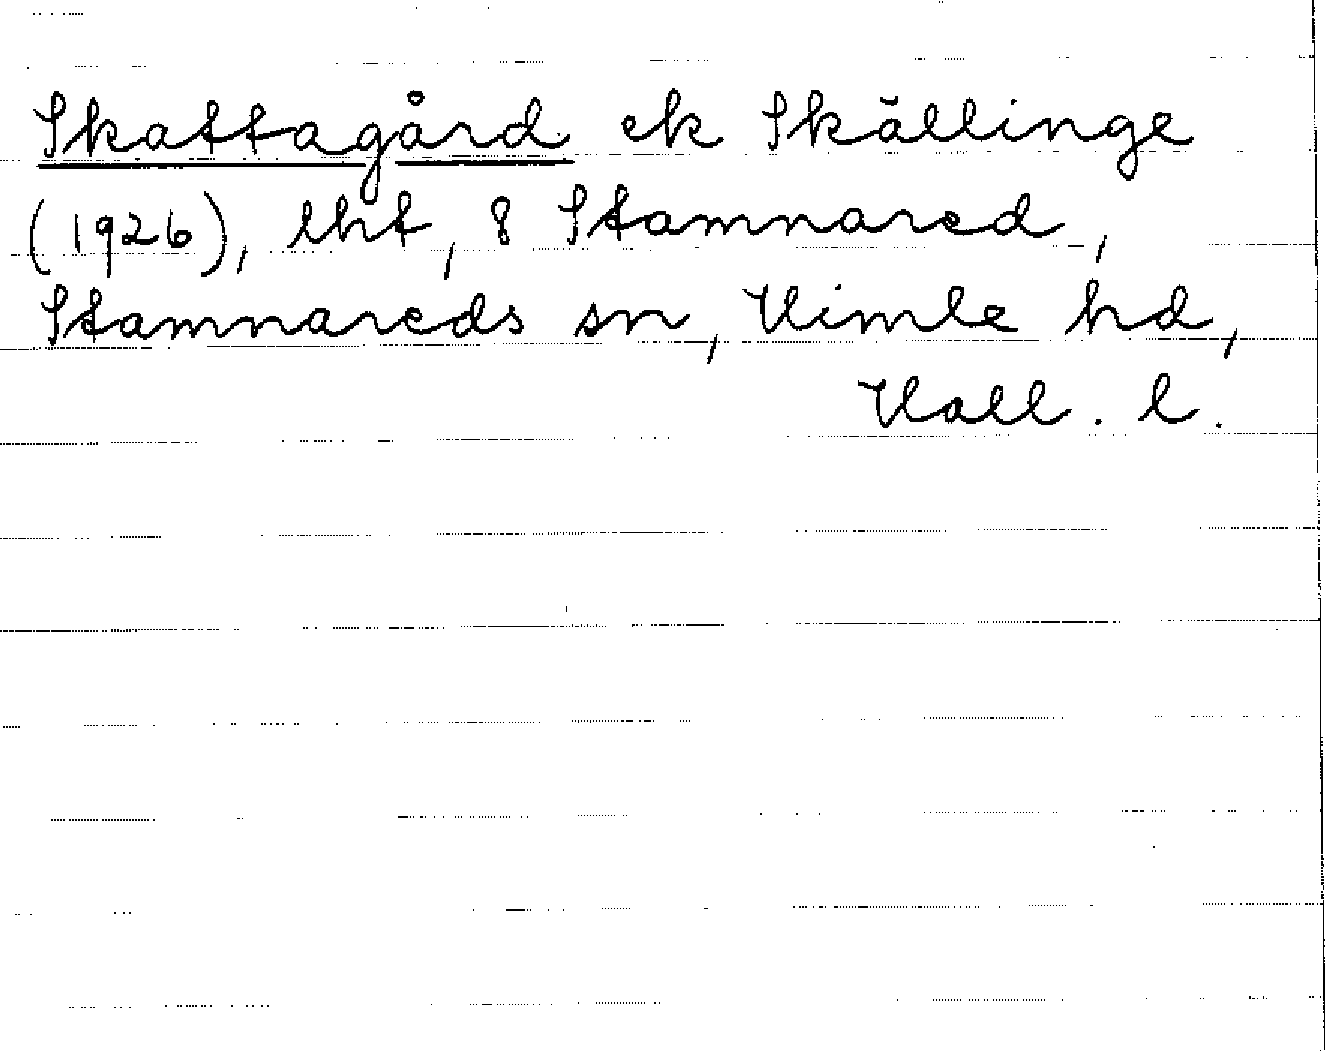 Skattagård ek Skällinge
(1926), lht, 8 Stamnared,
Stamnareds sn, Himle hd,
Hall. l.